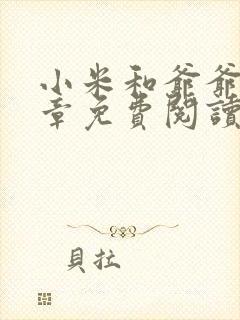 小米和爺爺
章免費閱讀
貝拉